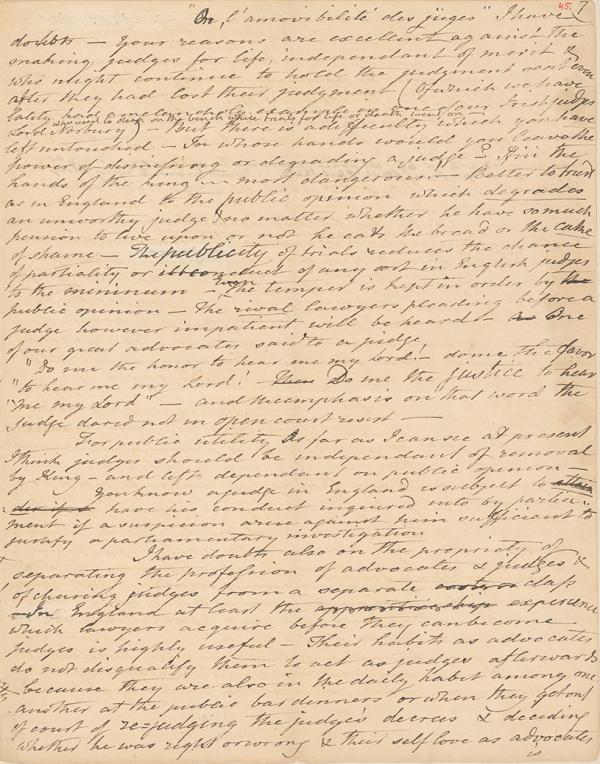 45. 7
"On, l'amovibilité des juges" I have
doubts — Your reasons are excellent against the
making judges for life, independant of merit &
who might continue to hold the judgment seat even
after they had lost their judgment (Of which we have
lately had one example in one of our Irish judges
Lord Norbury who used to sleep on the bench while trials for life or death went on —
But there is a difficulty which you have
left untouched — In whose hands would you leave the
power of dismissing or degrading a judge? If in the
hands of the king — most dangerous! — Better to trust
as in England to the public opinion which degrades
an unworthy judge no matter whether he have so much
pension to live upon or not he eats the bread or the cake
of shame — The publicity of trials reduces the chance
of partiality or of any sort in English judges
to the minimum — Even the temper is kept in order by the
public opinion — The rival lawyers pleading before a
judge however impatient will be heard — One
of our great advocates said to a judge
"Do me the honor to hear me my Lord! — do me the favor
"to hear me my Lord! Do me the justice to hear
"me my Lord" — and the emphasis on that word the
Judge dared not in open court resist —
For public utility, as far as I can see at present
I think judges should be independent of removal
by King — and left dependant on public opinion
You know a judge in England is subject to
have his conduct inquired into by parlia-
ment if a suspicion arise against him sufficient to
justify a parliamentary investigation
I have doubts also on the propriety of
separating the profession of advocates & judges &
of chusing judges from a separate class
— In England at least the experience
which lawyers acquire before they can become
judges is highly useful — Their habits as advocates
do not disqualify them to act as judges afterwards
because they are also in the daily habit among one
another at the public bar dinners or when they get out
of court of re=judging the judges decrees & deciding
whether he was right or wrong & their self love as advocates
is